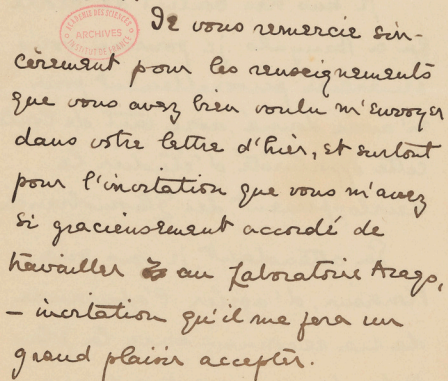 ACADEMIE DES SCIENCES
ARCHIVES
INSTITUT DE FRANCE
Je vous remercie sin-
cèrement pour les renseignements
que vous avez bien voulu m'envoyer
dans votre lettre d'hier, et surtout
pour l'invitation que vous m'avez
si gracieusement accordé de
travailler au Laboratoire Arago,
– invitation qu'il me fera un
grand plaisir accepter.